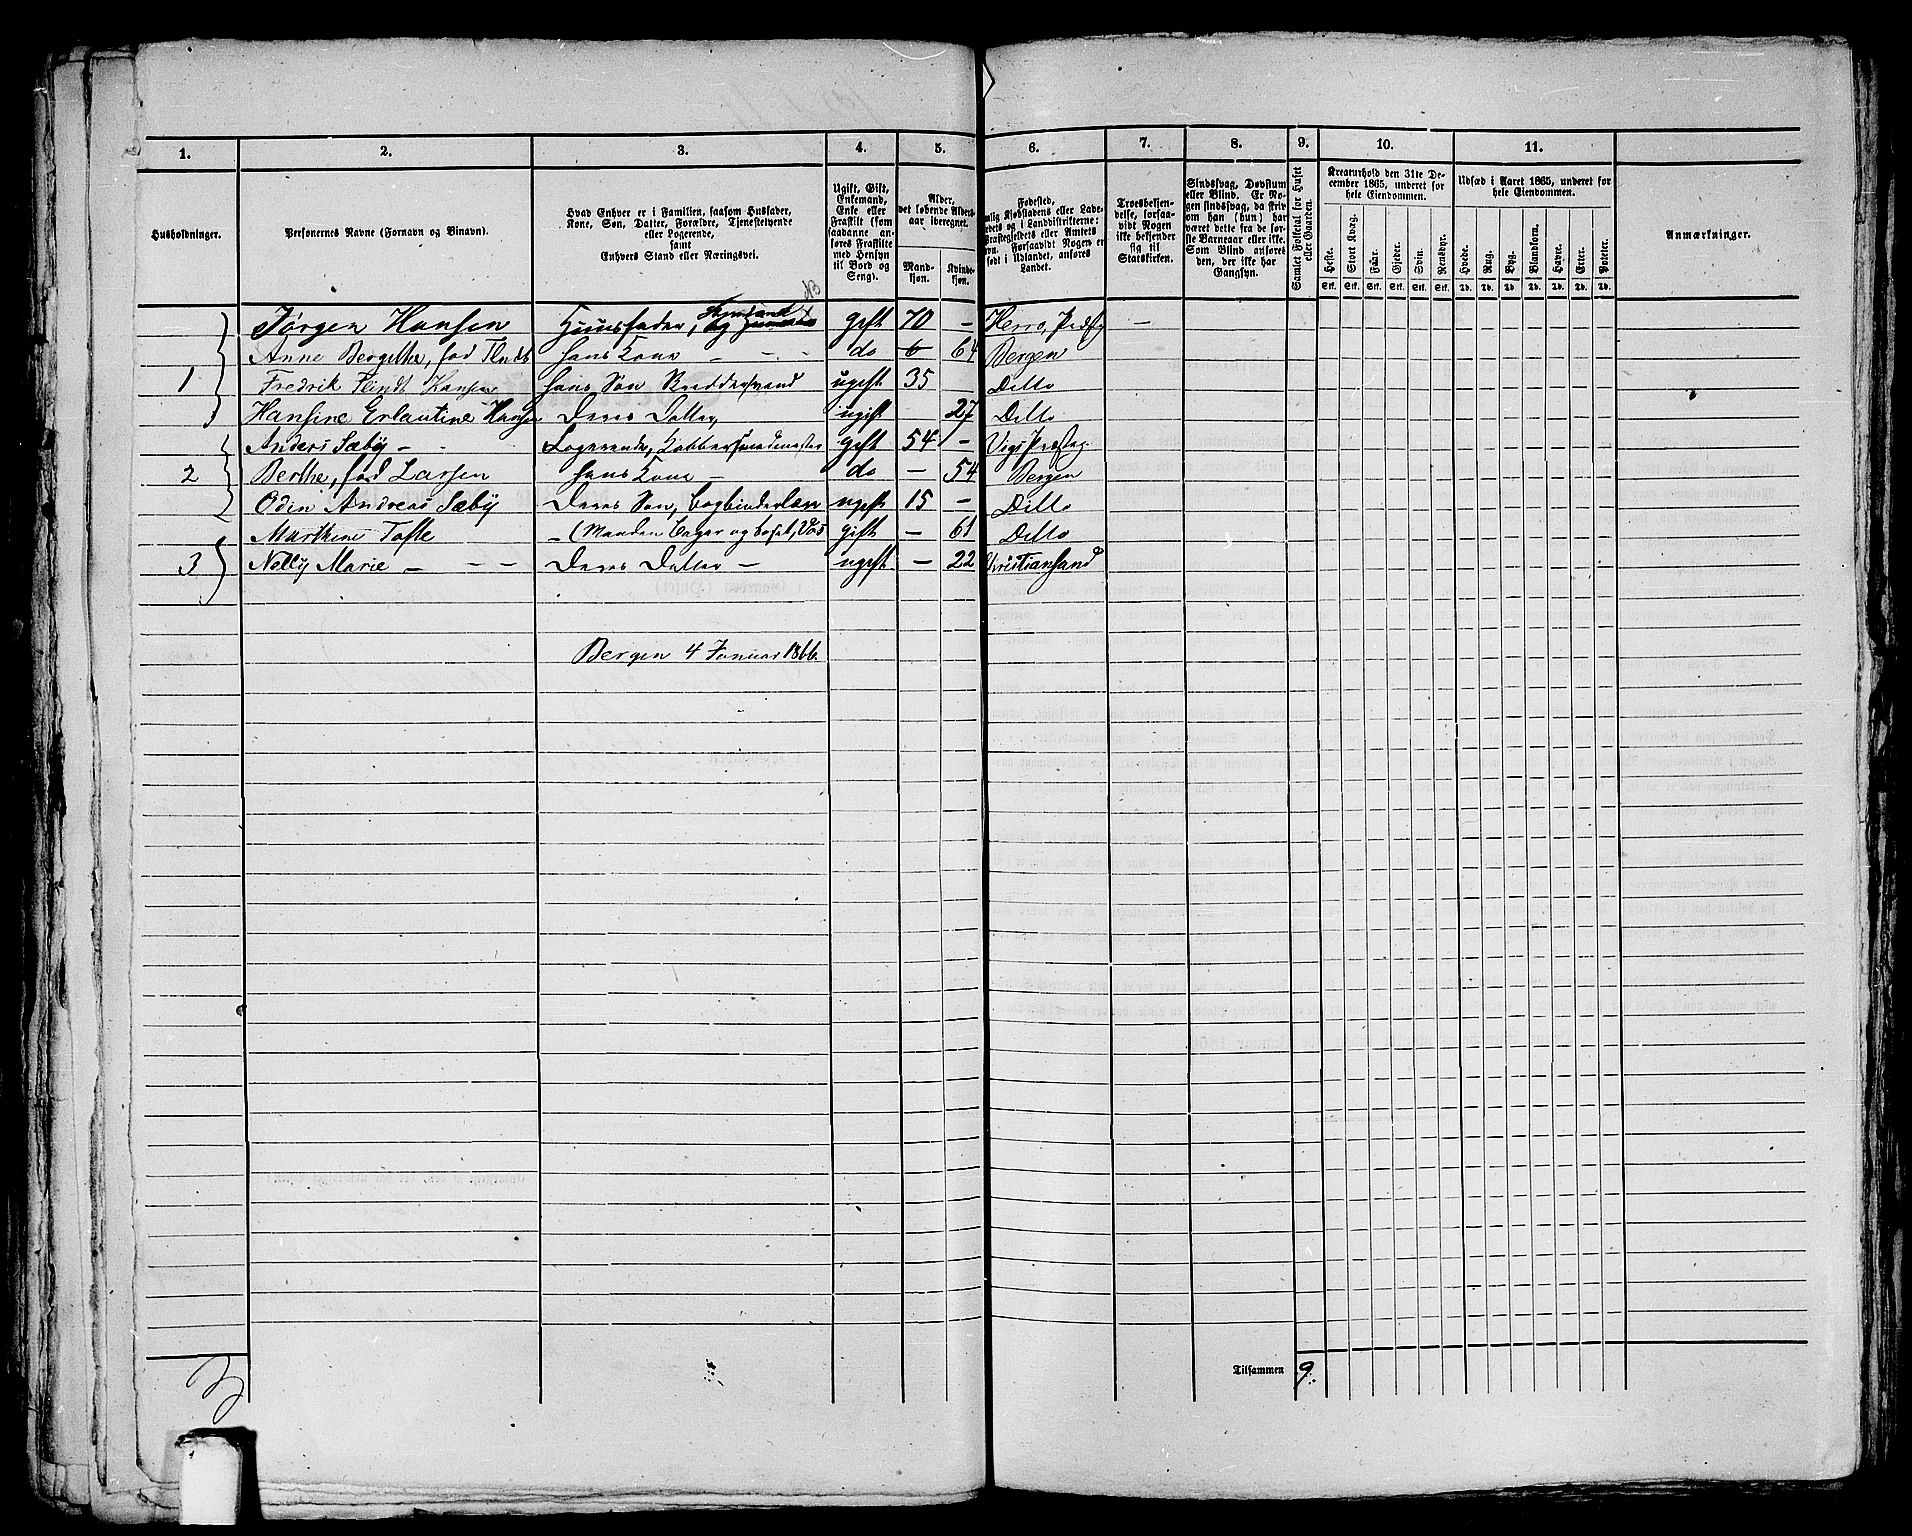 1. 2. 3. 4. 5. 6. 7. 8. 9. 10. 11.
Husholdninger.
Personernes Navne (Fornavn og Binavn).
Hvad Enhver er i Familien, saasom Husfader,
Kone, Søn, Datter, Forældre, Tjenestetyende
eller Logerende,
samt
Enhvers Stand eller Næringsvei.
Ugift, Gift,
Enkemand,
Enke eller
Fraskilt (som
saadanne an-
føres Fraskilte
med Hensyn
til Bord og
Seng).
Alder,
det løbende Alders-
aar iberegnet.
Mand-
kjøn.
Kvinde-
kjøn.
Fødested,
Forsaavidt Nogen er
født i Udlandet, anføres
Landet.
Troesbekjen-
delse, forsaa-
vidt Nogen
ikke bekjender
sig til
Statskirken.
Sindssvag, Døvstum
eller Blind. Er No-
gen sindssvag, da skriv
om han (hun) har
været dette fra de før-
ste Barneaar eller ikke.
Som Blind anføres
den, der ikke har
Gangsyn.
Samlet Folketal for Huset
eller Gaarden.
Kreaturhold den 31te De-
cember 1865, underet for
hele Eiendommen.
Heste. Stort Kvæg. Faar. Gjeder. Svin. Rensdyr.
Stk. Stk. Stk. Stk. Stk. Stk.
Udsæd i Aaret 1865, underet for
hele Eiendommen.
Hvede. Rug. Byg. Blandkorn. Havre. Erter. Poteter.
Td. Td. Td. Td. Td. Td. Td.
Anmærkninger.
Jørgen Hansen Huusfader, gift 70 –
Anne Bergithe, fød Flindt hans Kone – – – do 6 64 Bergen
1 Fredrik Flindt Hansen hans Søn ugift 35 Ditto
Hansine Erlautine Hansen Deres Datter, ugift 27 Ditto
Anders Sæby – Logerende, Kobbersmedmester gift 54 –
2 Berthe, fød Larsen hans Kone – do – 54 Bergen
Odin Andreas Sæby Deres Søn, Bogbinderlære ugift 15 – Ditto
Marthine Tofte gift – 61 Ditto
3 Nelly Marie – – – Deres Datter – ugift – 22 Christiansand
Bergen 4 Januar 1866.
3
Tilsammen 9